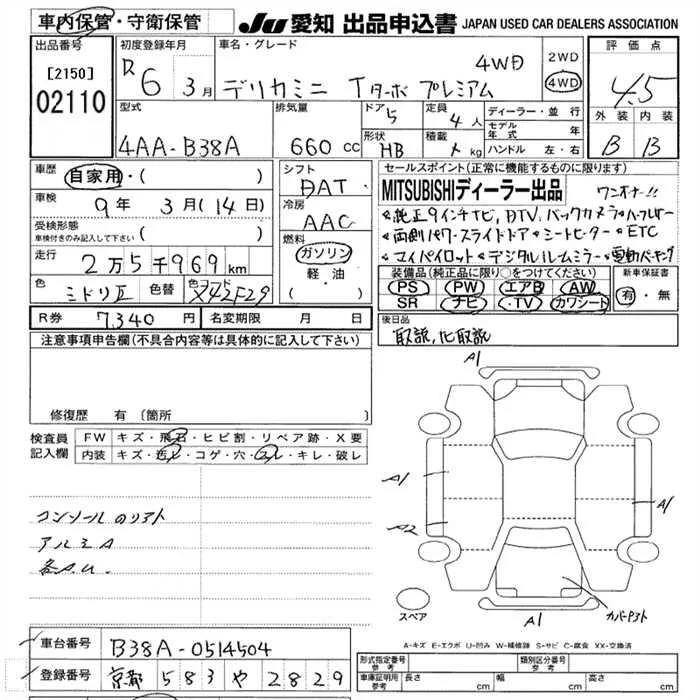 車内保管・守衛保管
JU 愛知 出品申込書 JAPAN USED CAR DEALERS ASSOCIATION
出品番号
[2150]
02110
初度登録年月
R6 3月
車名・グレード
デリカミニ Tターボ プレミアム 4WD
2WD
4WD
評価点
4.5
外装 内装
B B
型式
4AA-B38A
排気量
660 cc
ドア 5
形状 HB
定員 4 人
積載 kg
ディーラー・並行
モデル年式 年
ハンドル 左・右
車歴 自家用・( )
車検 9年 3月(14日)
受検形態
車検付きのみ記入して下さい ( )
走行 2万5千969 km
色 ミドリⅡ 色替 色コード X42F29
シフト
DAT
冷房
AAC
燃料
ガソリン
軽・油
( )
セールスポイント(正常に機能するものに限ります)
MITSUBISHIディーラー出品 ワンオナー!!
純正9インチナビ, DTV, バックカメラ
両側パワースライドドア シートヒーター ETC
マイパイロット デジタルルームミラー 電動パーキング
装備品(純正品に限り○をつけてください)
PS PW エアB AW
SR ナビ ・TV カワシート
新車保証書
有・無
R券 7,340 円 名変期限 月 日
後日品
取説,
注意事項申告欄(不具合内容等は具体的に記入して下さい)
修復歴 有 〔箇所 〕
検査員記入欄
FW キズ・飛石・ヒビ割・リペア跡・X要
内装 キズ・汚レ・コゲ・穴・スレ・キレ・破レ
コンソール
アルミA
各A.U.
A1
A1
A2
A1
A1
スペア
A-キズ E-エクボ U-凹み W-補修跡 S-サビ C-腐食 XX-交換済
車台番号 B38A-0514504
登録番号 京都 583 や 2829
形式指定番号 参考
類別区分番号 参考
車庫証明用 参考 長さ cm 幅 cm 高さ cm